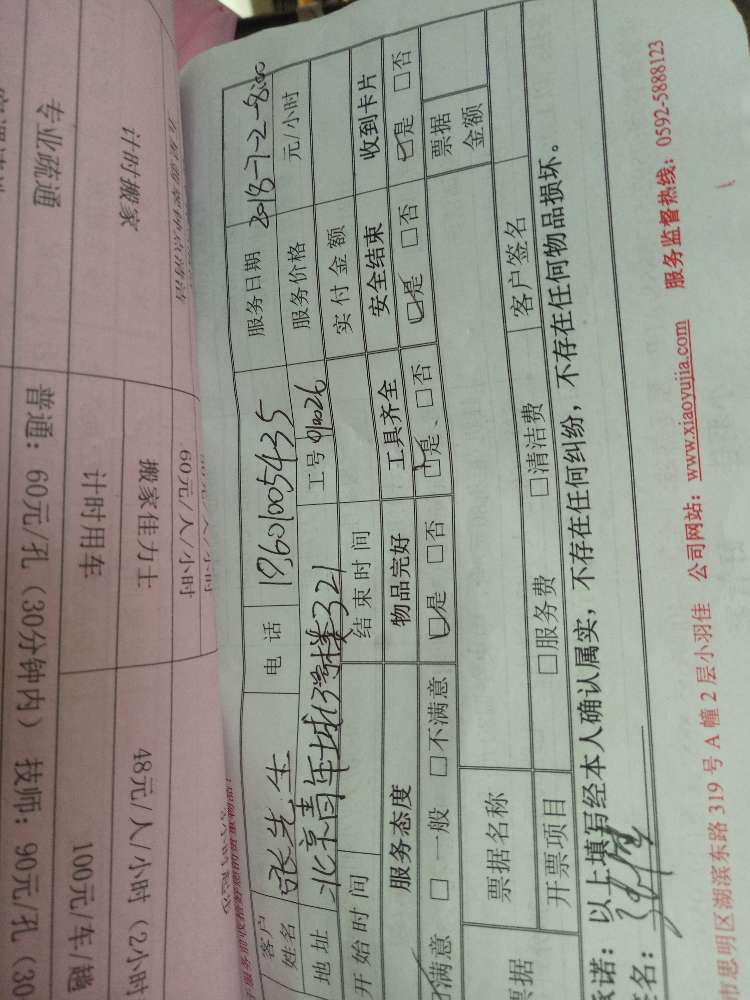 客户姓名 张先生 电话 19601005435 服务日期 2018-7-2-8:00
地址 北京青年城 楼321 工号 服务价格 元/小时
开始时间 结束时间 实付金额
服务态度 物品完好 工具齐全 安全结束 收到卡片
满意 □一般 □不满意 □是 □否 □是、□否 □是 □否 □是 □否
票据名称 票据金额
开票项目 □服务费 □清洁费 客户签名
诺：以上填写经本人确认属实，不存在任何纠纷，不存在任何物品损坏。
名：
市思明区湖滨东路 319 号 A 幢 2 层小羽佳 公司网站：www.xiaoyujia.com 服务监督热线：0592-5888123
60元/人/小时
计时搬家 搬家佳力士 48元/人/小时（2小时
计时用车 100元/车/趟
专业疏通 普通：60元/孔（30分钟内） 技师：90元/孔（30